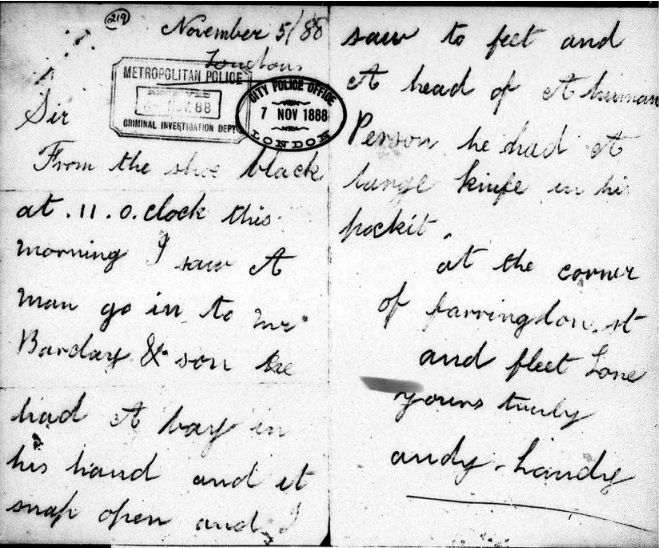 219
November 5/88
London
METROPOLITAN POLICE
NOV. 88
CRIMINAL INVESTIGATION DEPT
CITY POLICE OFFICE
7 NOV 1888
LONDON
Sir
From the shoe black
at . 11 . 0 . clock this
morning I saw A
man go in to mr
Barclay & son he
had A bag in
his hand and it
snap open and I
saw to feet and
A head of A human
Person he had A
large knife in his
pockit
at the corner
of farringdon . st
and fleet Lane
yours truly
andy - handy